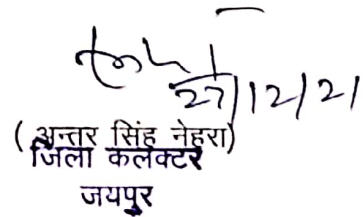 27/12/21
(अन्तर सिंह नेहरा)
जिला कलक्टर
जयपुर